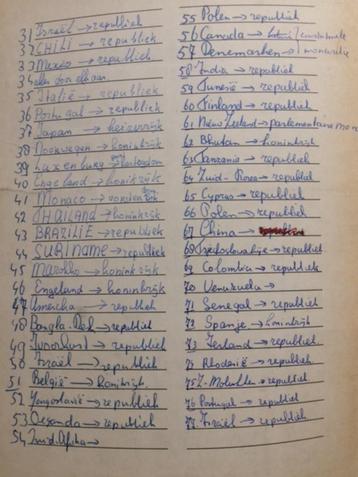 31 Israël → republiek
32 CHILI → republiek
33 Mexico → republiek
34
35 Italië → republiek
36 Portugal → republiek
37 Japan → keizerrijk
38 Noorwegen → koninkrijk
39 Luxenburg →
40 Engeland → koninkrijk
41 Monaco →
42 THAILAND → koninkrijk
43 BRAZILIË → republiek
44 SURINAME → republiek
45 Marokko → koninkrijk
46 Engeland → koninkrijk
47 America → republiek
48 Bangla-Des → republiek
49 → republiek
50 Israël → republiek
51 België → Koninkrijk.
52 Joegoslavië → republiek
53 Oeganda → republiek
54 Zuid.Afrika →
55 Polen → republiek
56 Canada →
57 Denemarken → monarchie
58 India → republiek
59 Tunesië → republiek
60 Finland → republiek
61 New Zeeland → parlementaire mon
62 Bhutan → koninkrijk
63 Tanzania → republiek
64 Zuid-Korea → republiek
65 Cyprus → republiek
66 Polen → republiek
67 China →
68 Tsjechoslowakije → republiek
69 Colombia → republiek
70 Venezuela →
71 Senegal → republiek
72 Spanje → koninkrijk
73 Ierland → republiek
74 Rhodesië → republiek
75 Z-Molukken → republiek
76 Portugal → republiek
77 Israël → republiek